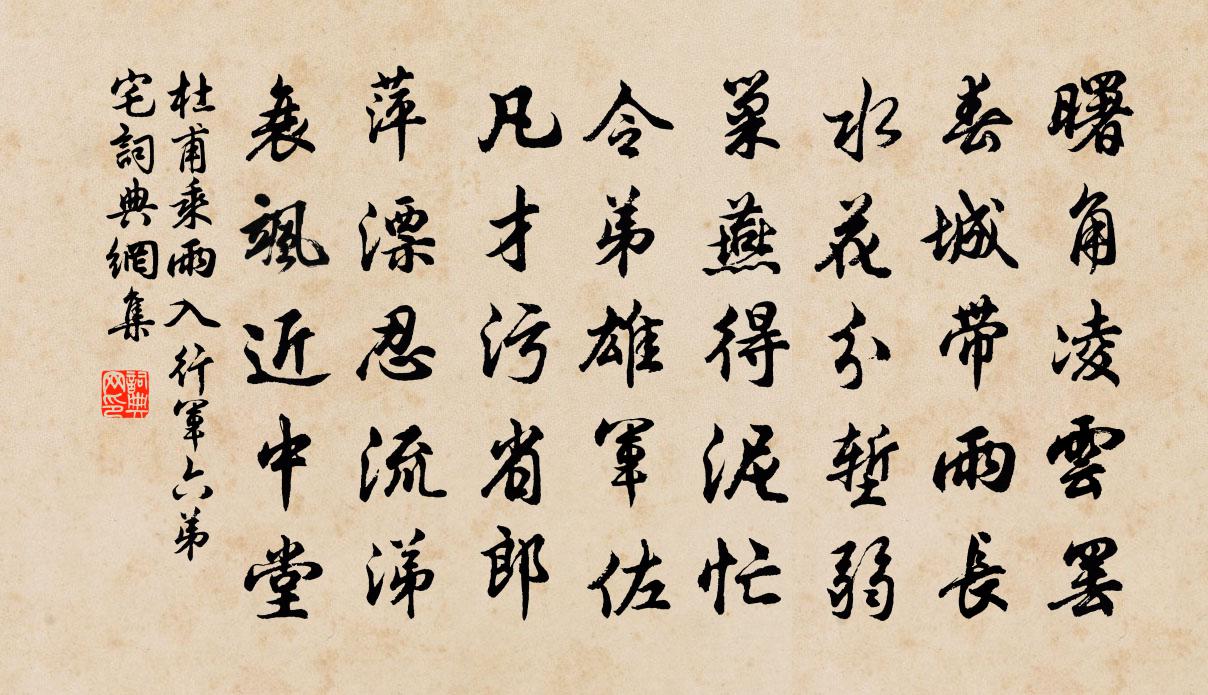 曙角凌雲罢
春城带雨長
水花分堑弱
巢燕得泥忙
令弟雄軍佐
凡才污省郎
萍漂忍流涕
衰颯近中堂
杜甫乘雨入行軍六弟
宅詞典網集
詞典
网印